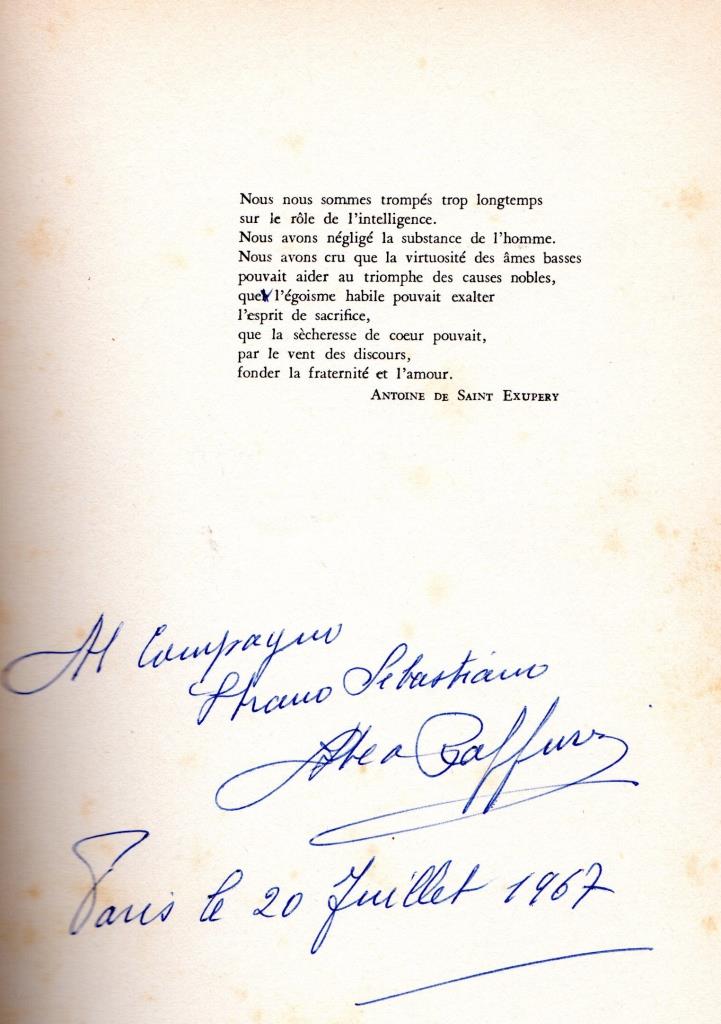 Nous nous sommes trompés trop longtemps
sur le rôle de l'intelligence.
Nous avons négligé la substance de l'homme.
Nous avons cru que la virtuosité des âmes basses
pouvait aider au triomphe des causes nobles,
que l'égoisme habile pouvait exalter
l'esprit de sacrifice,
que la sècheresse de coeur pouvait,
par le vent des discours,
fonder la fraternité et l'amour.
ANTOINE DE SAINT EXUPERY
Al Compagno
Strano Sebastiano
Paris le 20 Juillet 1967